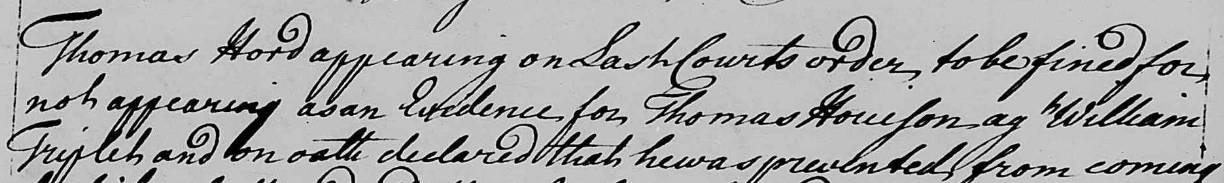 Thomas Hord appearing on Last Courts order, to be fined for
not appearing as an Evidence for Thomas Houison agt William
Triplet and on oath declared that he was prevented from coming